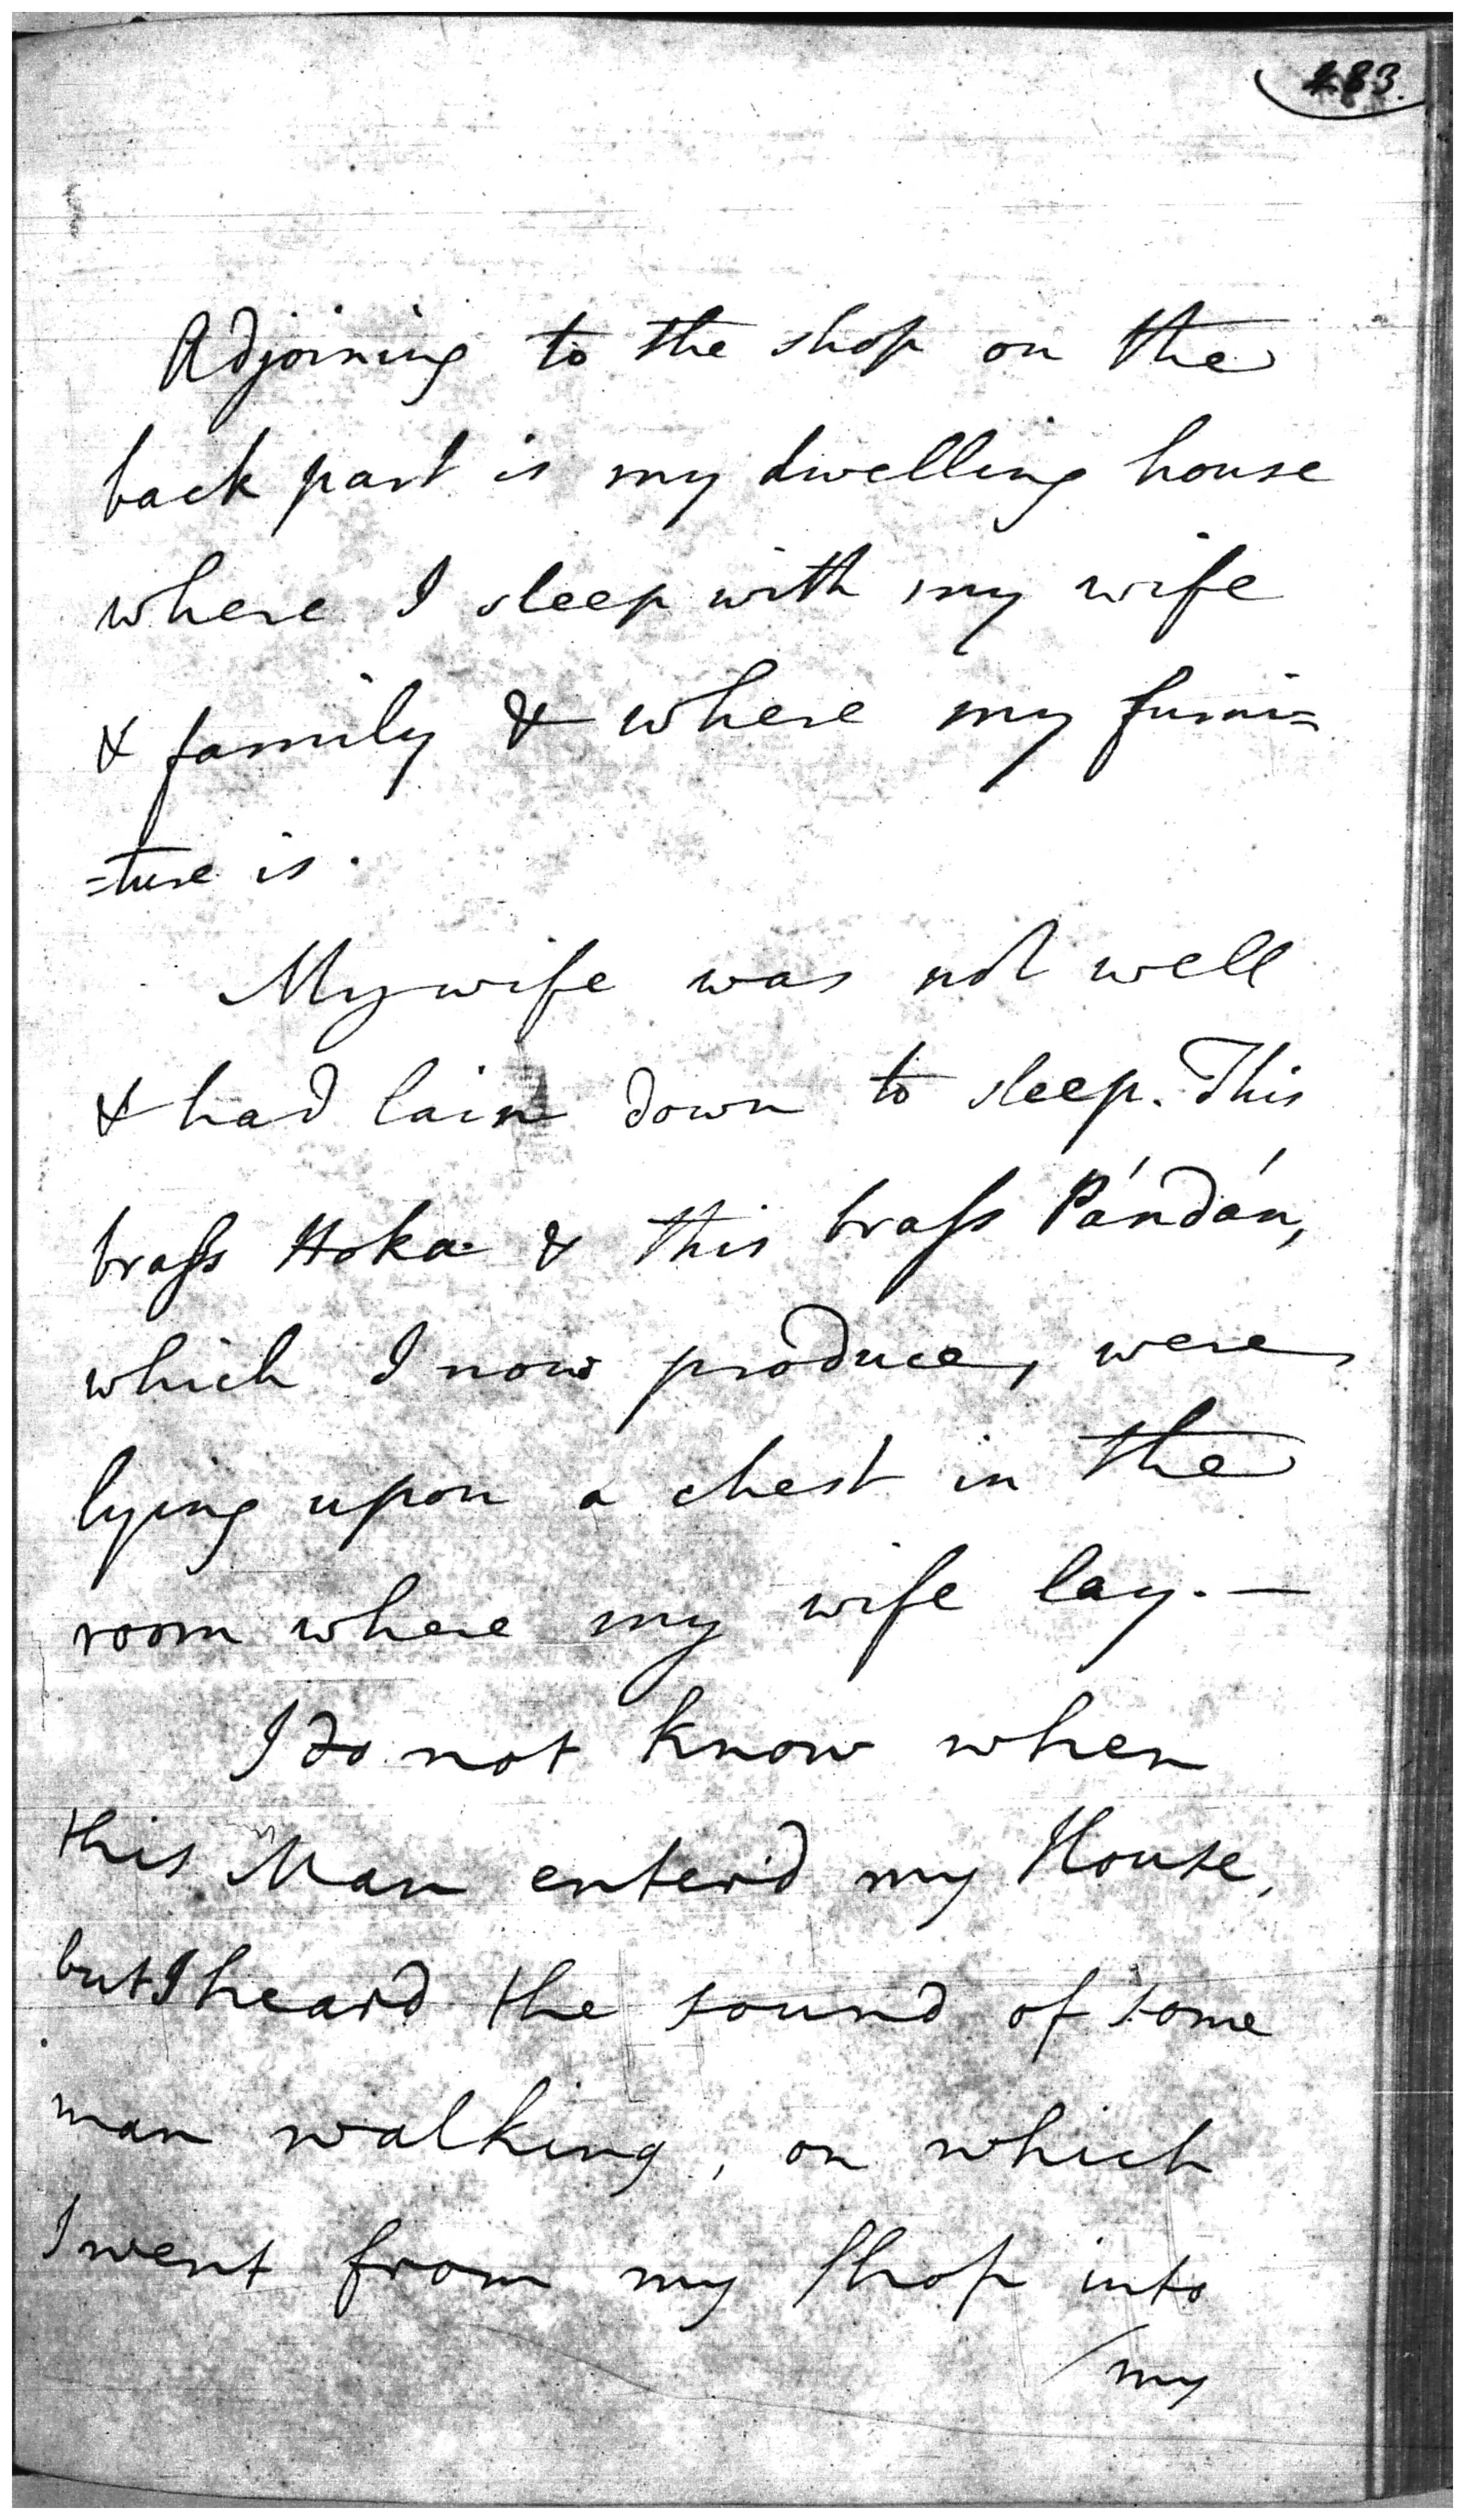 283.
Adjoining to the shop on the
back part is my dwelling house
where I sleep with my wife
& family & where my furni=
=ture is.
My wife was not well
& had lain down to sleep. This
braſs Hoka & this braſs Pándán,
which I now produce, were
lying upon a chest in the
room where my wife lay. —
I do not know when
this Man enter'd my House,
but I heard the sound of some
man walking, on which
I went from my Shop into
my